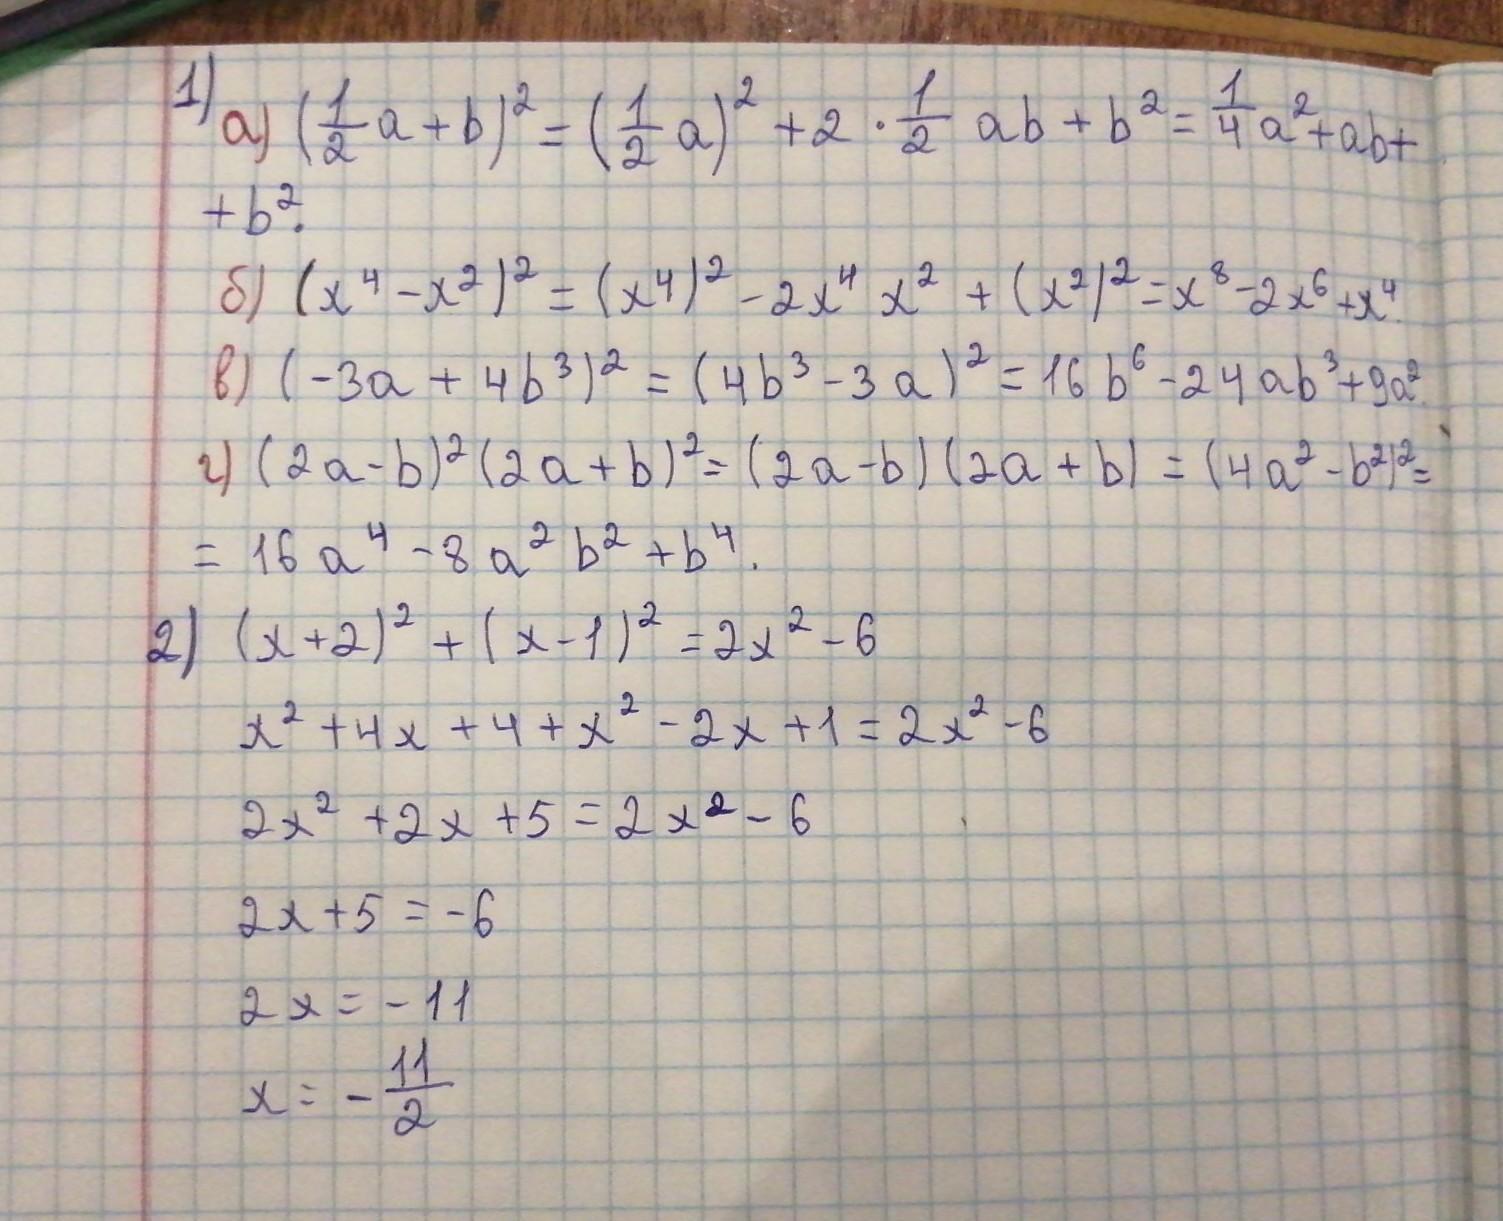 1) а) (1/2 a + b)² = (1/2 a)² + 2 · 1/2 ab + b² = 1/4 a² + ab +
+ b².
б) (x⁴ - x²)² = (x⁴)² - 2x⁴ x² + (x²)² = x⁸ - 2x⁶ + x⁴.
в) (-3a + 4b³)² = (4b³ - 3a)² = 16b⁶ - 24ab³ + 9a².
г) (2a - b)² (2a + b)² = (2a - b) (2a + b) = (4a² - b²)² =
= 16a⁴ - 8a² b² + b⁴.
2) (x + 2)² + (x - 1)² = 2x² - 6
x² + 4x + 4 + x² - 2x + 1 = 2x² - 6
2x² + 2x + 5 = 2x² - 6
2x + 5 = -6
2x = -11
x = - 11/2